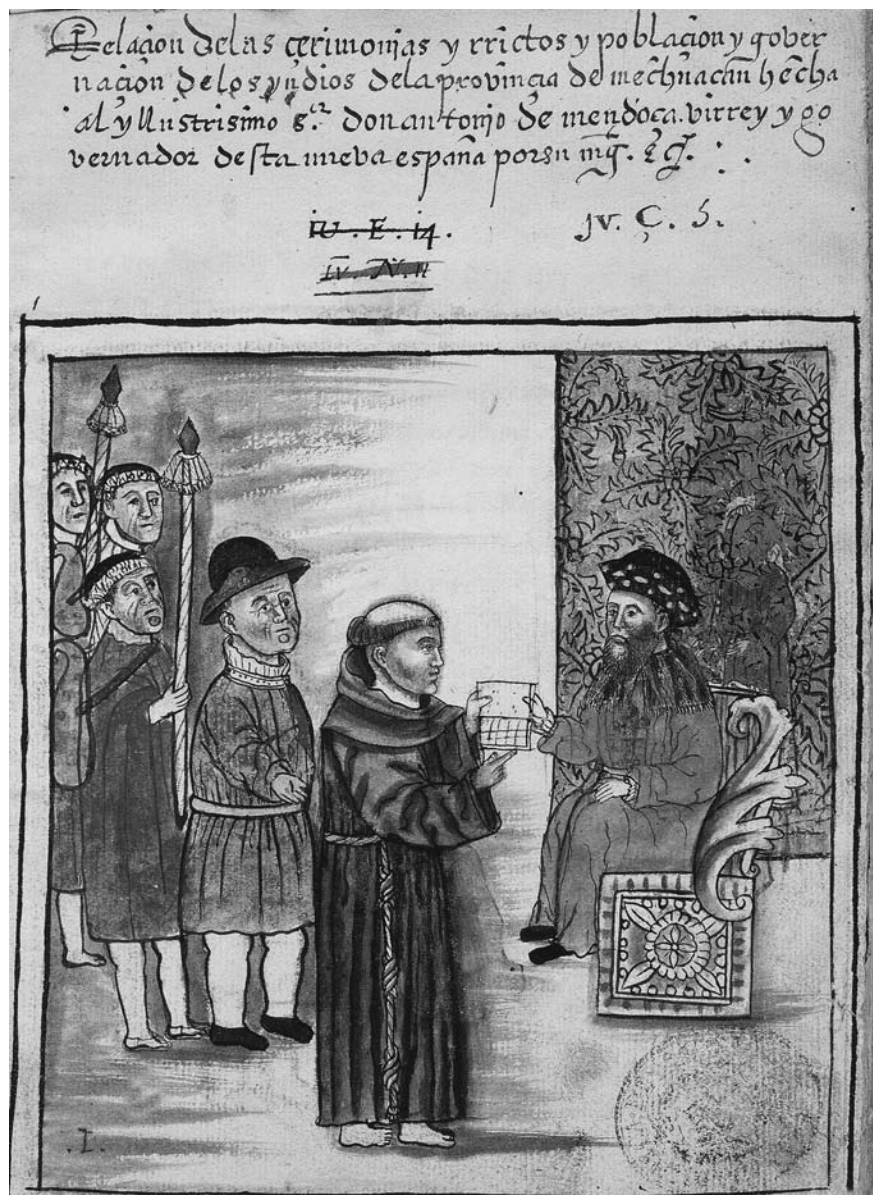 Relacion delas cerimonias y rrictos y poblacion y gover
nacion delos yndios dela provincia de mechuacan hecha
al yllustrisimo s.or don antonjo de mendoça. virrey y go
vernador desta nueva españa por su mg. &c.
iv. E. 14.
jv. Ç. 5.
IV. N. 11
.I.